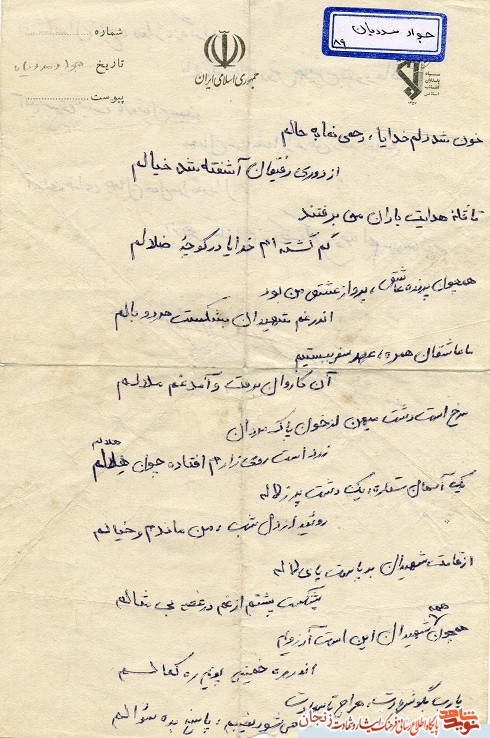 جواد سددیان
۸۹
شماره
تاریخ
پیوست
جمهوری اسلامی ایران
سپاه پاسداران انقلاب اسلامی
خون شد دلم خدایا، رحمی نما به حالم
از دوری رفیقان آشفته شد خیالم
قافلهٔ هدایت یاران می برفتند
گم گشته ام خدایا در کوچهٔ ضلالم
همچون پرنده عاشق، پرواز عشق من بود
اندر غم شهیدان بشکست هر دو بالم
ما عاشقان همره، عهد سفر ببستیم
آن کاروان برفت و آمد غم ملالم
سرخ است دشت میهن از خون پاک مردان
زرد است روی زارم افتاده چون هلالم
هلالم
یک آسمان ستاره، یک دشت پر ز لاله
روئید از دل شب، من ماندم و خیالم
از قامت شهیدان برپاست پای لاله
بشکست پشتم از غم در غصه بی مثالم
همچون همه شهیدان این است آرزویم
اندر ره خمینی پویم ره کمالم
یارب بگو
می شود نصیبم، پاسخ بده سؤالم
نوید شاهد
پایگاه اطلاع رسانی فرهنگ ایثار و شهادت زنجان